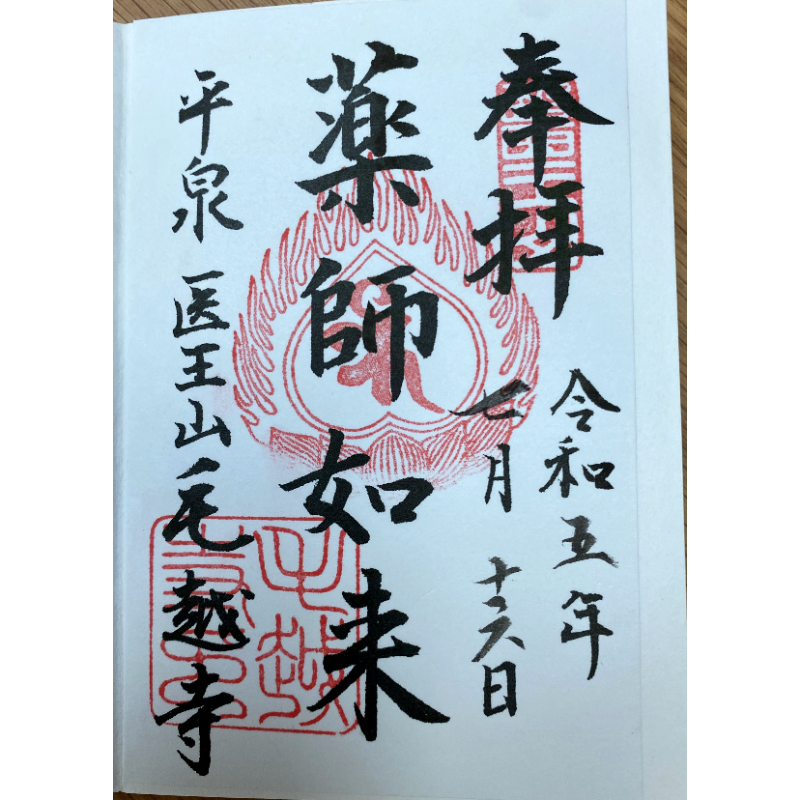 奉拝
令和五年
七月十六日
薬師如来
平泉 医王山毛越寺